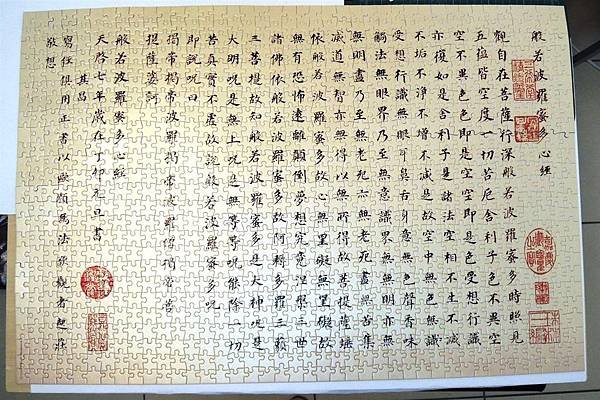 般若波羅蜜多心經
觀自在菩薩行深般若波羅蜜多時照見
五蘊皆空度一切苦厄舍利子色不異空
空不異色色即是空空即是色受想行識
亦復如是舍利子是諸法空相不生不滅
不垢不淨不增不減是故空中無色無識
受想行識無眼耳鼻舌身意無色聲香味
觸法無眼界乃至無意識界無無明亦無
無明盡乃至無老死亦無老死盡無苦集
滅道無智亦無得以無所得故菩提薩埵
依般若波羅蜜多故心無罣礙無罣礙故
無有恐怖遠離顛倒夢想究竟涅槃三世
諸佛依般若波羅蜜多故阿耨多羅三藐
三菩提故知般若波羅蜜多是大神咒是
大明咒是無上咒是無等等咒能除一切
苦真實不虛故說般若波羅蜜多咒
即說咒曰
揭帝揭帝波羅揭帝波羅僧揭帝菩
提薩婆訶
般若波羅蜜多心經
天啓七年歲在丁卯元旦書
其昌
寫經俱用正書以歐顏為法欲觀者起莊
敬想